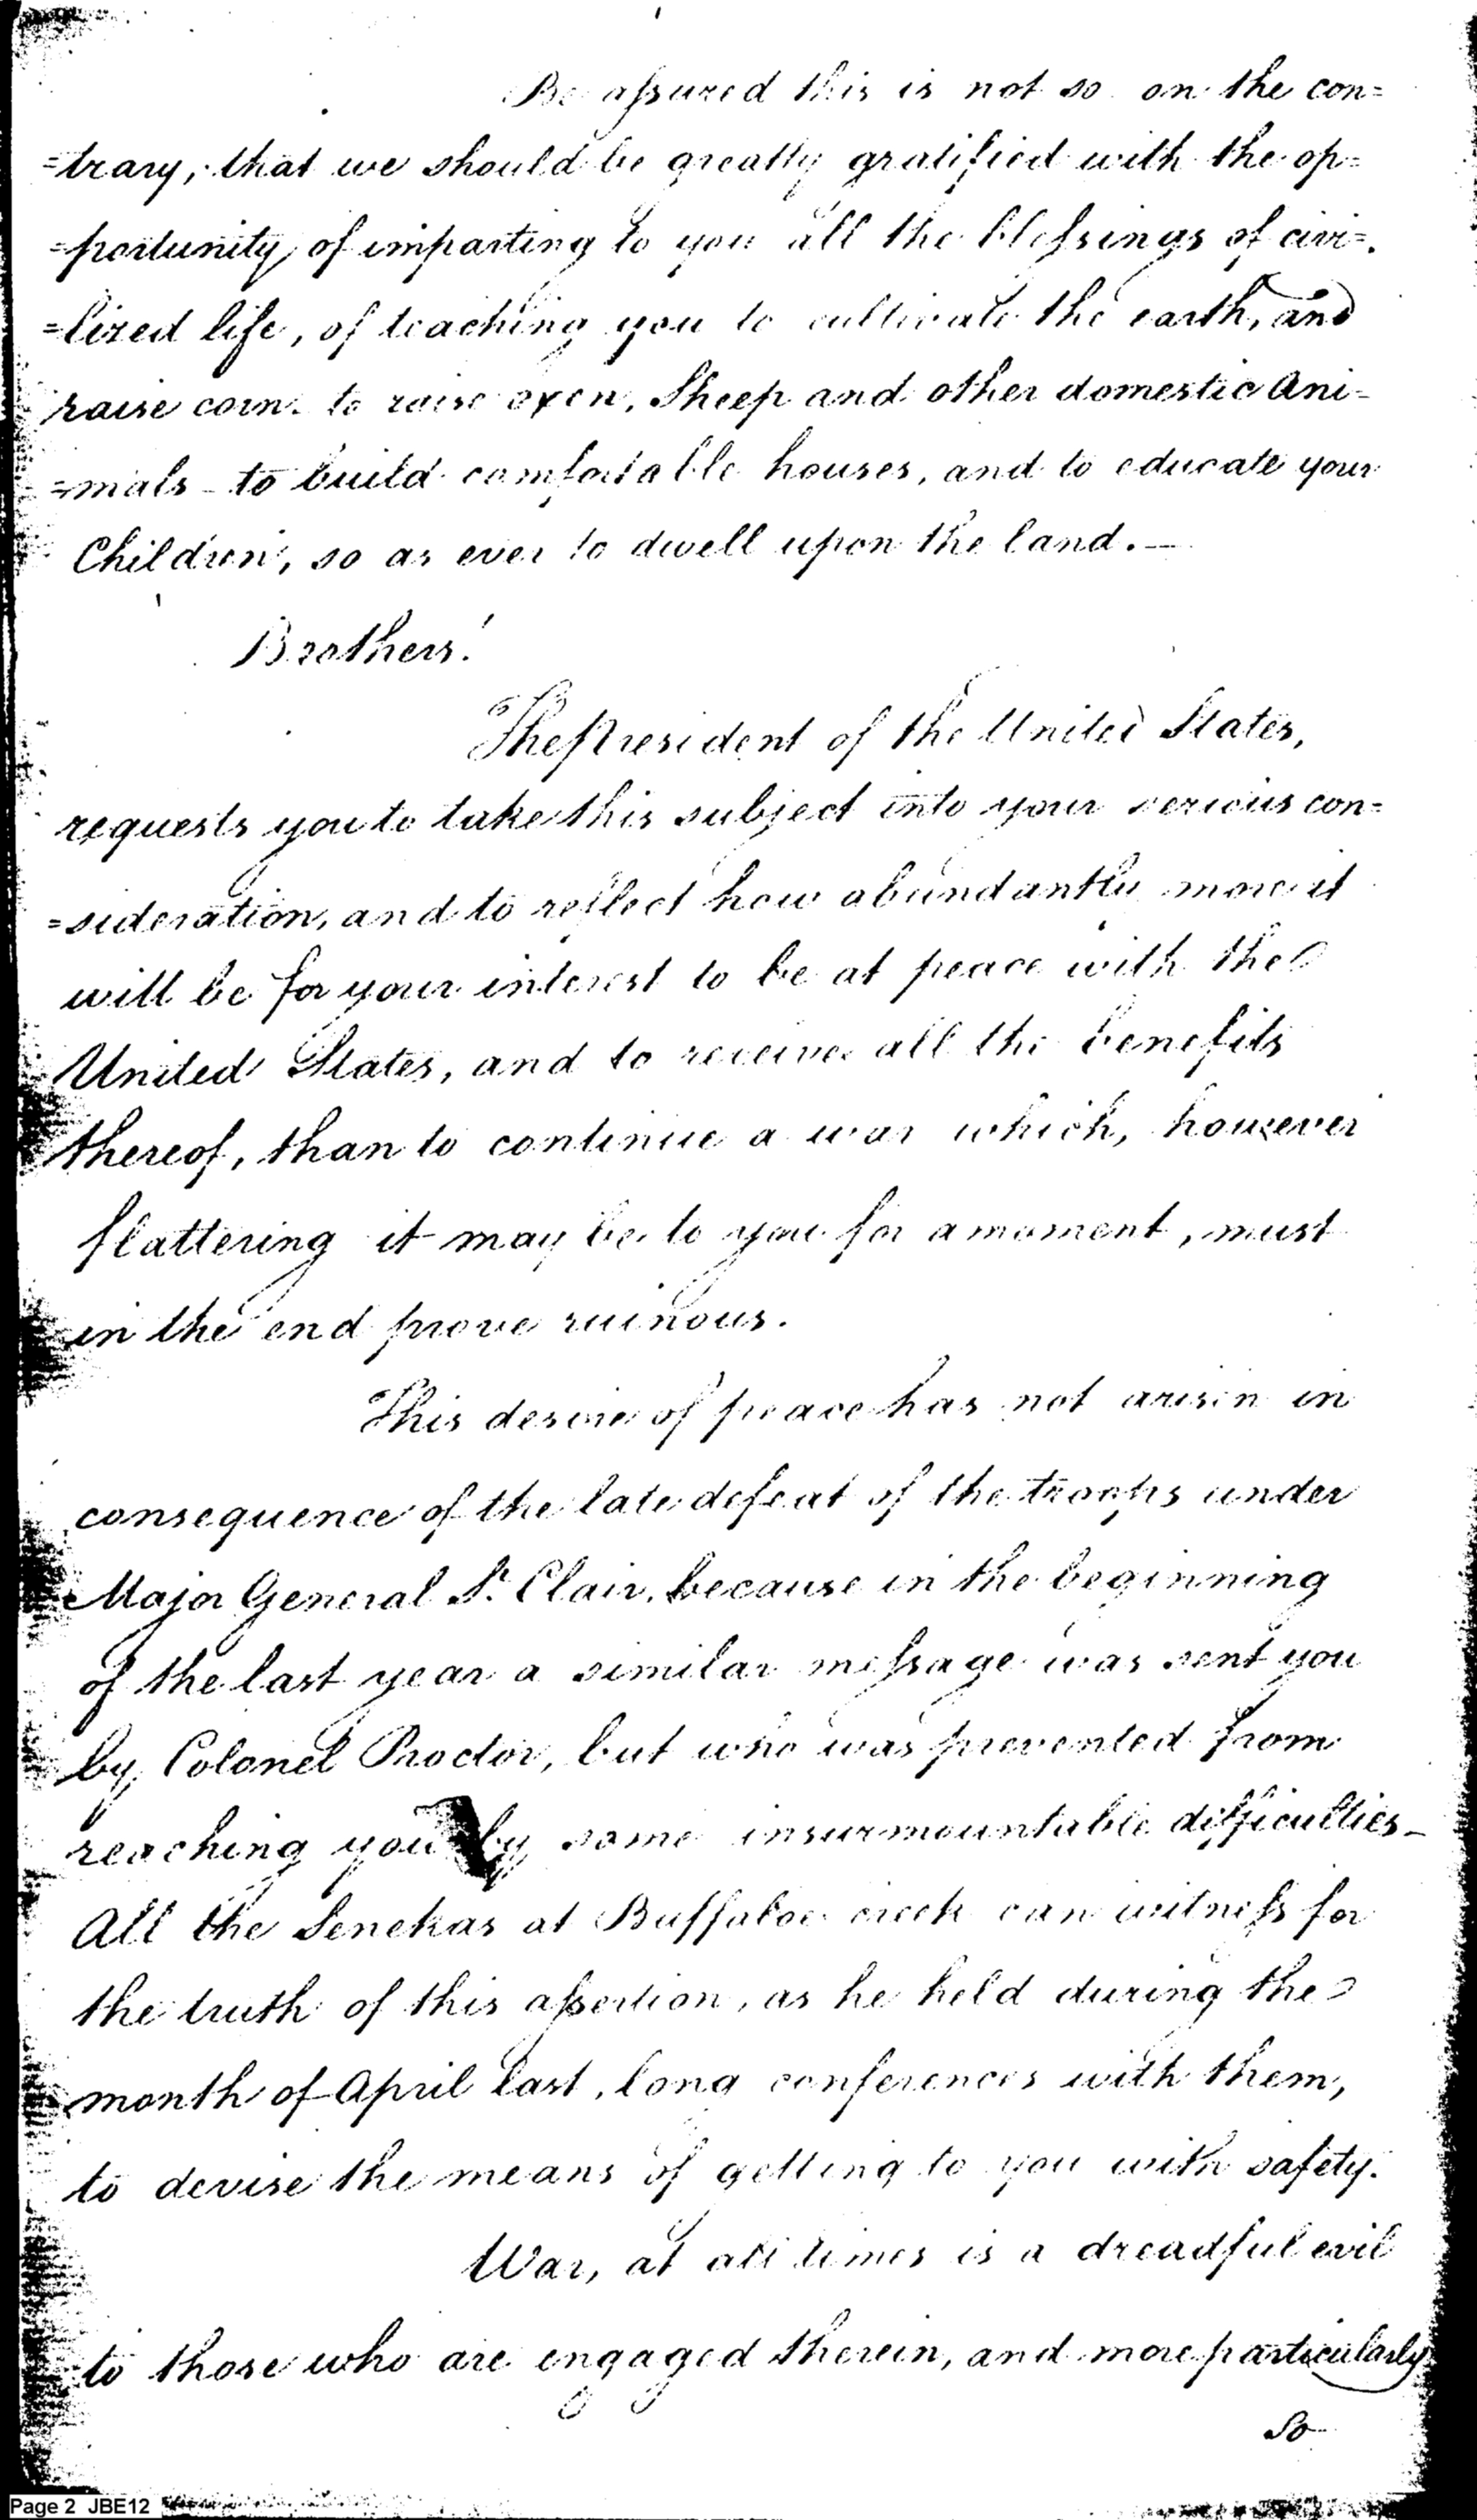 Be assured this is not so on the con=
=trary, that we should be greatly gratified with the op=
=portunity of imparting to you all the blessings of civi=
=lized life, of teaching you to cultivate the earth, and
raise corn. to raise oxen, Sheep and other domestic Ani=
=mals – to build comfortable houses, and to educate your
Children, so as ever to dwell upon the land. —
Brothers!
The President of the United States,
requests you to take this subject into your serious con=
=sideration, and to reflect how abundantly more it
will be for your interest to be at peace with the
United States, and to receive all the benefits
thereof, than to continue a war which, however
flattering it may be to you for a moment, must
in the end prove ruinous.
This desire of peace has not arisen in
consequence of the late defeat of the troops under
Major General St. Clair, because in the beginning
of the last year a similar message was sent you
by Colonel Proctor, but who was prevented from
reaching you by some insurmountable difficulties –
All the Senekas at Buffaloe creek can witness for
the truth of this assertion, as he held during the
month of April last, long conferences with them,
to devise the means of getting to you with safety.
War, at all times is a dreadful evil
to those who are engaged therein, and more particularly
so
Page 2 JBE12